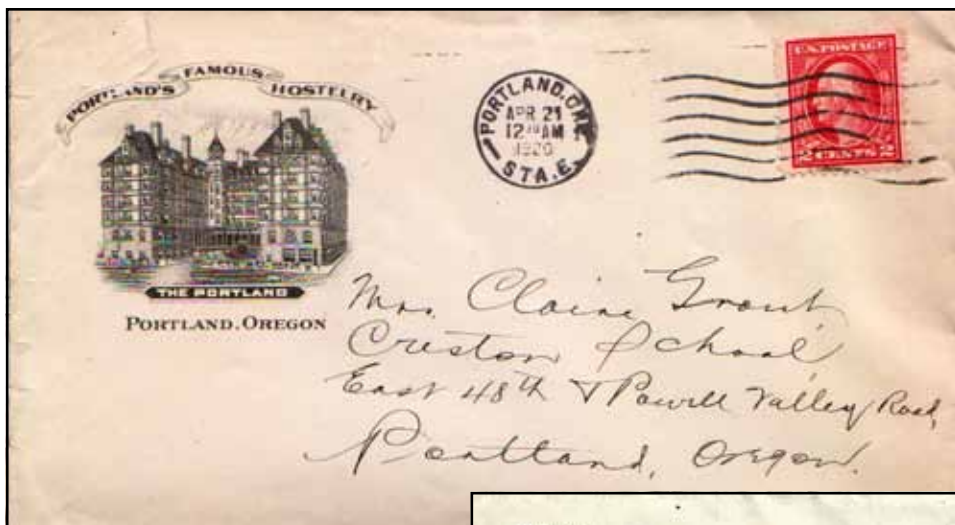 PORTLAND'S FAMOUS HOSTELRY
THE PORTLAND
PORTLAND, OREGON
PORTLAND, ORE.
APR 21
12 AM
1920
STA. E.
U.S. POSTAGE
2 CENTS 2
Mrs. Claire Grout,
Creston School,
East 48th & Powell Valley Road,
Portland, Oregon.